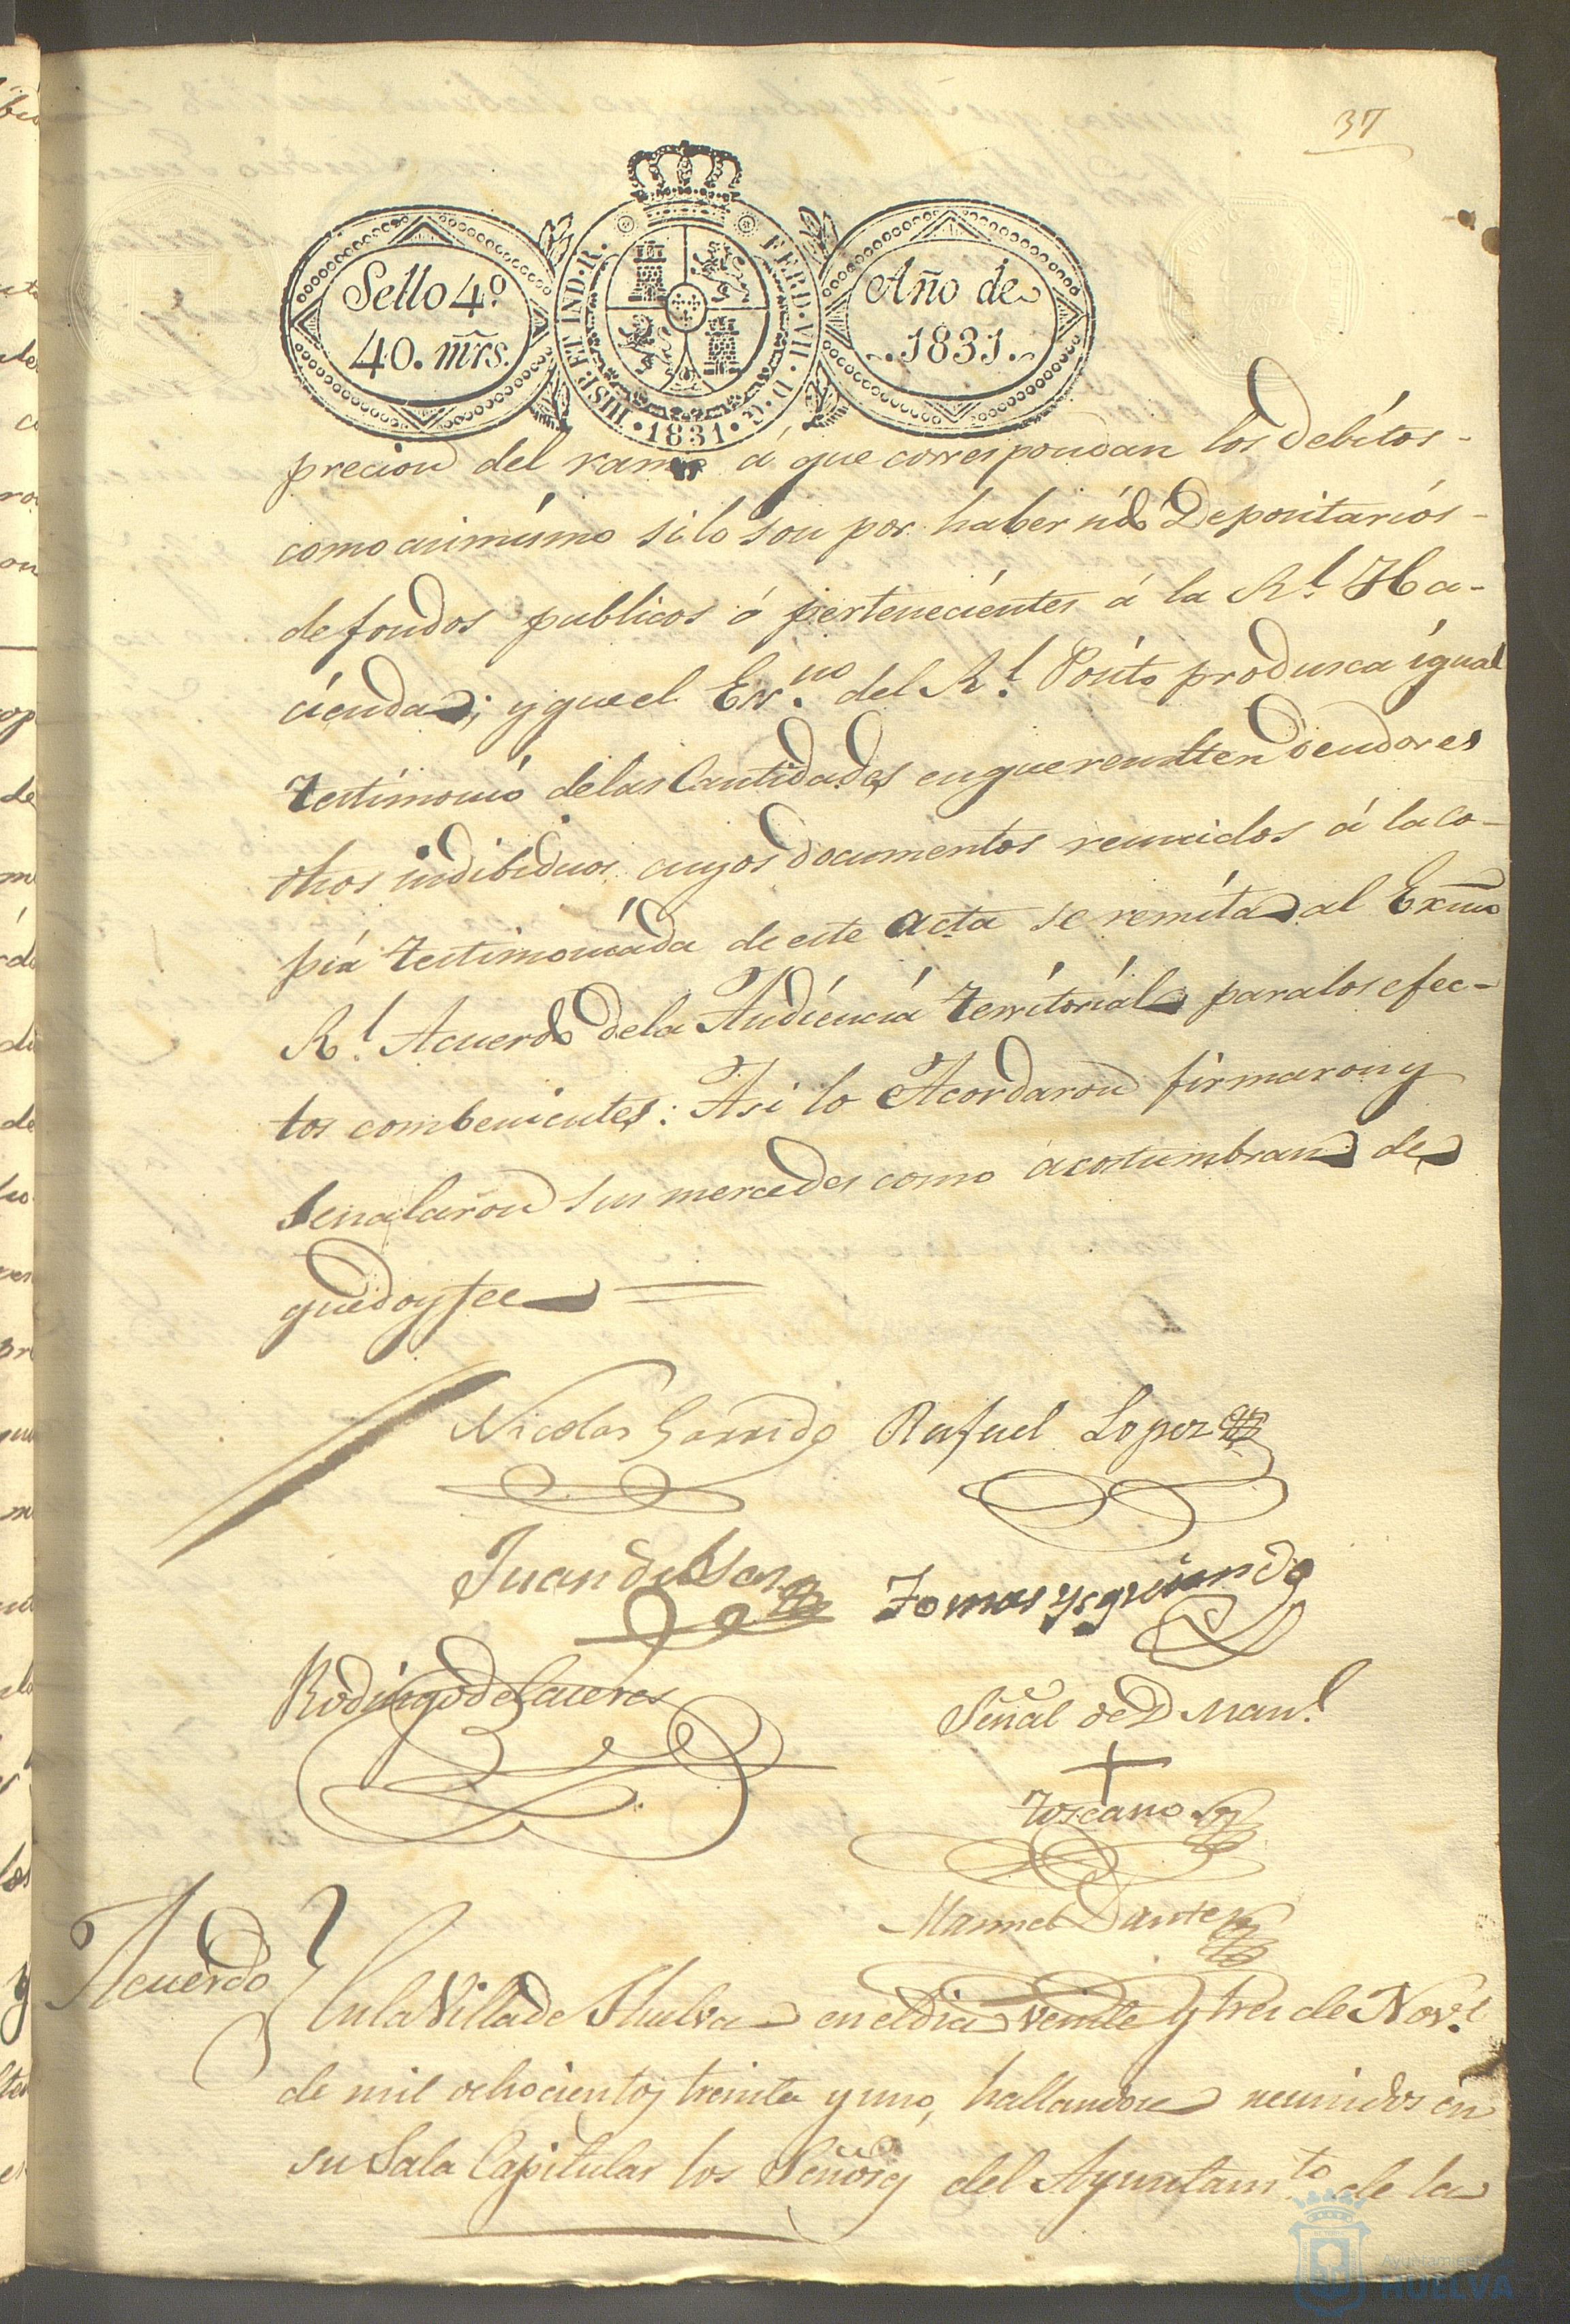 37
Sello 4.º
40. mrs.
HISP. ET IND. R.
FERD. VII. D. G.
1831
Año de
1831.
precion del ramo á que correspondan los debitos-
como asimismo si lo son por haber sido Depositarios-
de fondos publicos ó pertenecientes á la R.l Ha-
cienda; y que el Es.no del R.l Posito produsca igual
testimonio de las Cantidades en que resulten deudores
dhos indibiduos cuyos documentos reunidos á la co-
pia testimoniada de este acta se remita al Exmo
R.l Acuerdo de la Audiencia territorial para los efec-
tos combenientes: Asi lo Acordaron firmaron y
señalaron sus mercedes como acostumbran de
que doy fee
Nicolas Garrido Rafael Lopez
Juan de Tomas Yzquierdo
Rodrigo de Caceres
Señal de D Man.l
Toscano
Manuel
Acuerdo
En la Villa de Huelva en el dia veinte y tres de Nov.e
de mil ochocientos treinta y uno, hallandose reunidos en
su Sala Capitular los Señores del Ayuntam.to de la
Ayuntamiento de
HUELVA